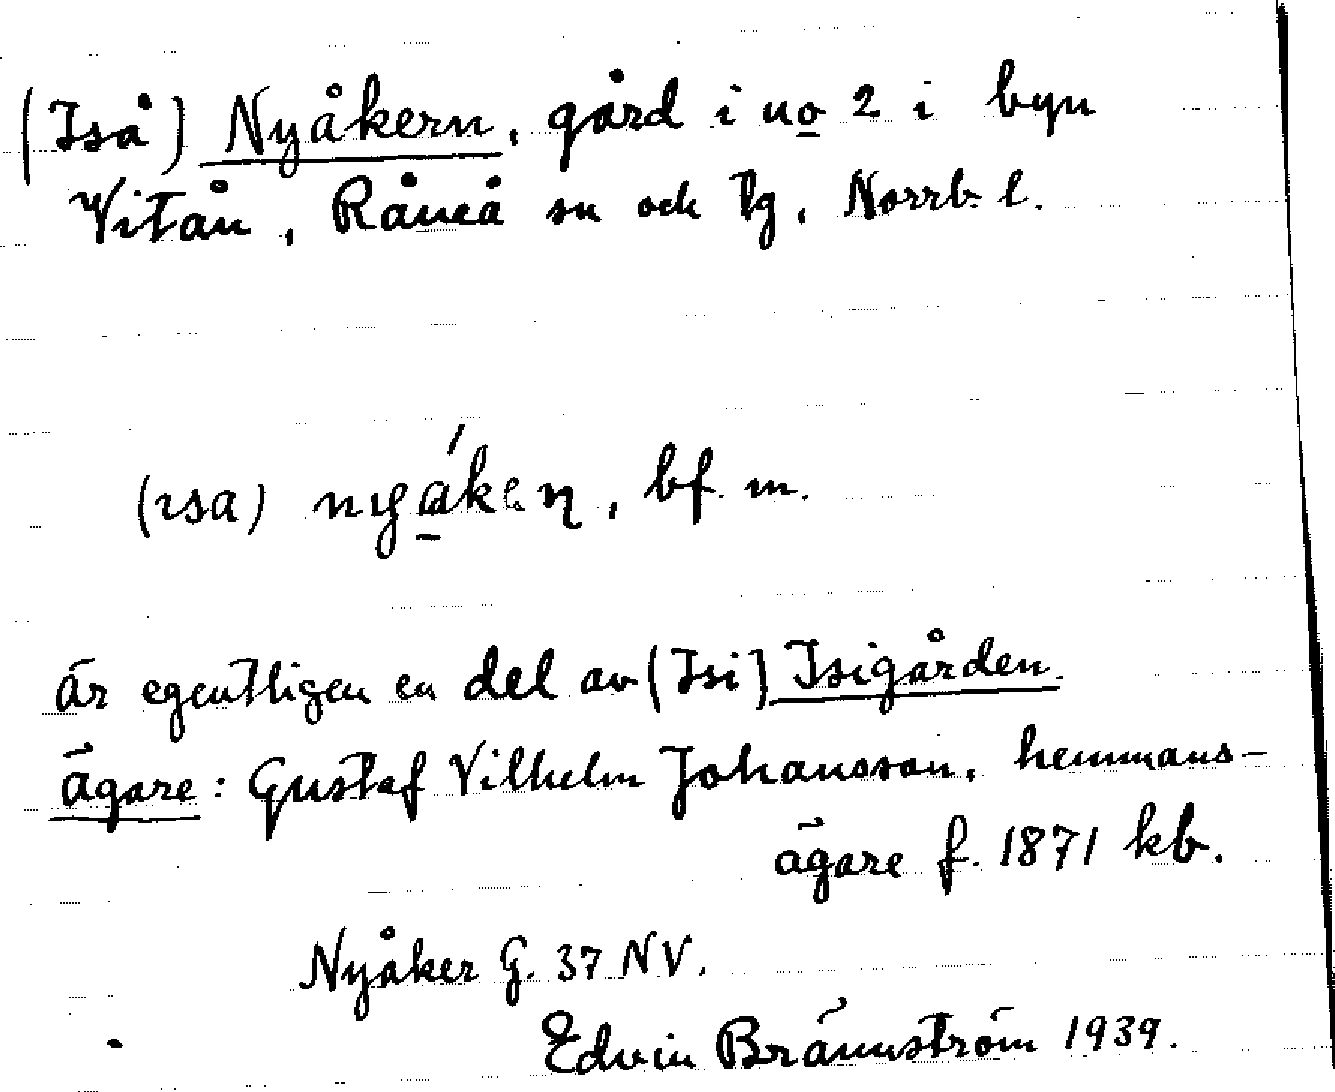 (Iså) Nyåkern, gård i no 2 i byn
Vitån, Råneå sn och tg, Norrb. l.
(ısa) nyáken̥, bf. m.
är egentligen en del av (Isi) Isigården.
ägare: Gustaf Vilhelm Johansson, hemmans-
ägare f. 1871 kb.
Nyåker G. 37 NV.
Edvin Brännström 1939.